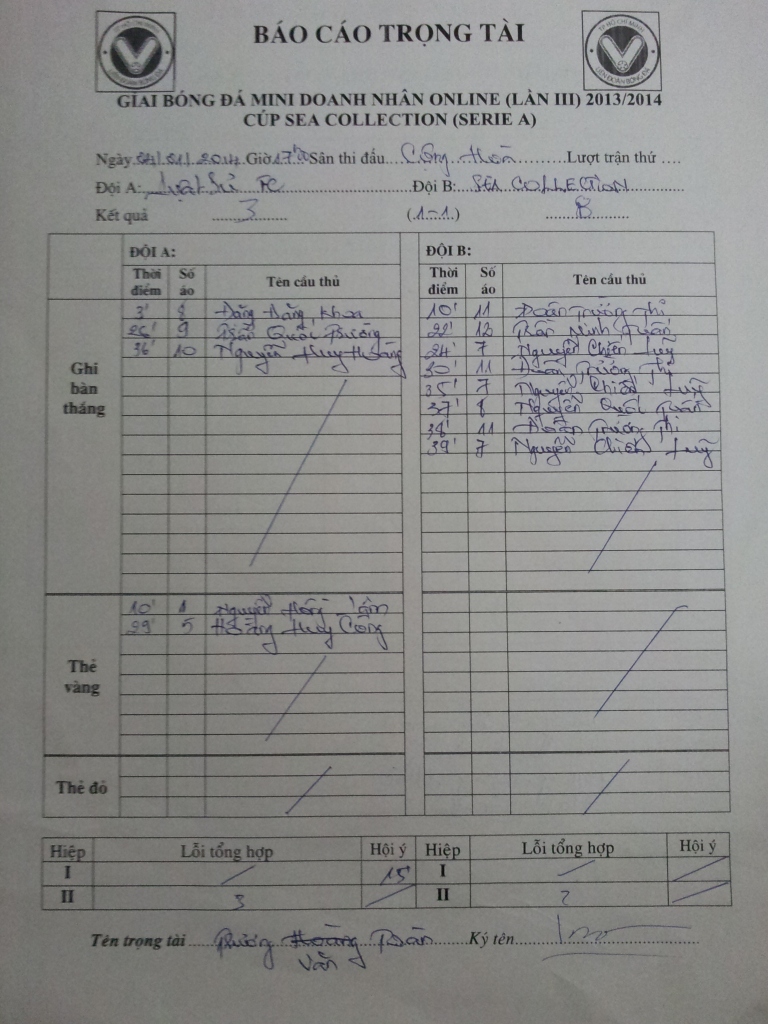 BÁO CÁO TRỌNG TÀI
GIẢI BÓNG ĐÁ MINI DOANH NHÂN ONLINE (LẦN III) 2013/2014
CÚP SEA COLLECTION (SERIE A)
Ngày 04/01/2014 Giờ 17h00 Sân thi đấu Cộng Hoà Lượt trận thứ ....
Đội A: Luật Sư FC Đội B: SEA COLLECTION
Kết quả 3 (1-1) 8
ĐỘI A: ĐỘI B:
Thời điểm Số áo Tên cầu thủ Thời điểm Số áo Tên cầu thủ
Ghi bàn thắng
3' 8 Đặng Đăng Khoa 10' 11 Đoàn Trường Thi
26' 9 Trần Quốc Trường 22' 12 Trần Minh Tuấn
36' 10 Nguyễn Huy Hoàng 24' 7 Nguyễn Chiến Luỹ
30' 11 Đoàn Trường Thi
35' 7 Nguyễn Chiến Luỹ
37' 8 Nguyễn Quốc Tuấn
38' 11 Đoàn Trường Thi
39' 7 Nguyễn Chiến Luỹ
Thẻ vàng
10' 1 Nguyễn Hồng
29' 5 Hoàng Huy Công
Thẻ đỏ
Hiệp Lỗi tổng hợp Hội ý Hiệp Lỗi tổng hợp Hội ý
I 15' I
II 3 II 2
Tên trọng tài Trương Văn Trần Ký tên